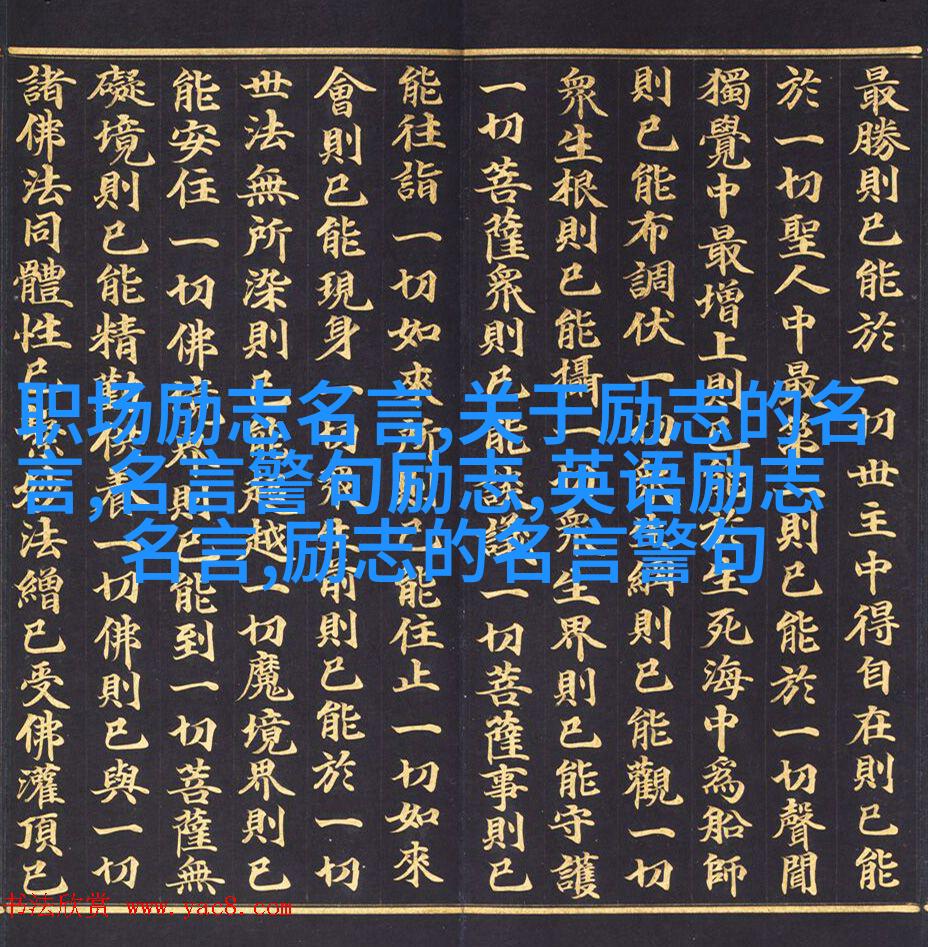 最勝則已能於一切世主中得自在則已能
於一切聖人中最第一則已能於一切聲聞
獨覺中最增上則已能於生死海中爲船師
則已能布調伏一切衆生網則已能觀一切
衆生根則已能攝一切衆生界則已能守護
一切菩薩衆則已能談議一切菩薩事則已
能往詣一切如來所則已能住止一切如來
會則已能現身一切衆生前則已能於一切
世法無所染則已能超越一切魔境界則已
能安住一切佛境界則已能到一切菩薩無
礙境則已能精勤供養一切佛則已與一切
諸佛法同體性已繫妙法繒已受佛灌頂已
职场励志名言,关于励志的名
言,名言警句励志,英语励志
名言,励志的名言警句
书法欣赏 www.yac8.com